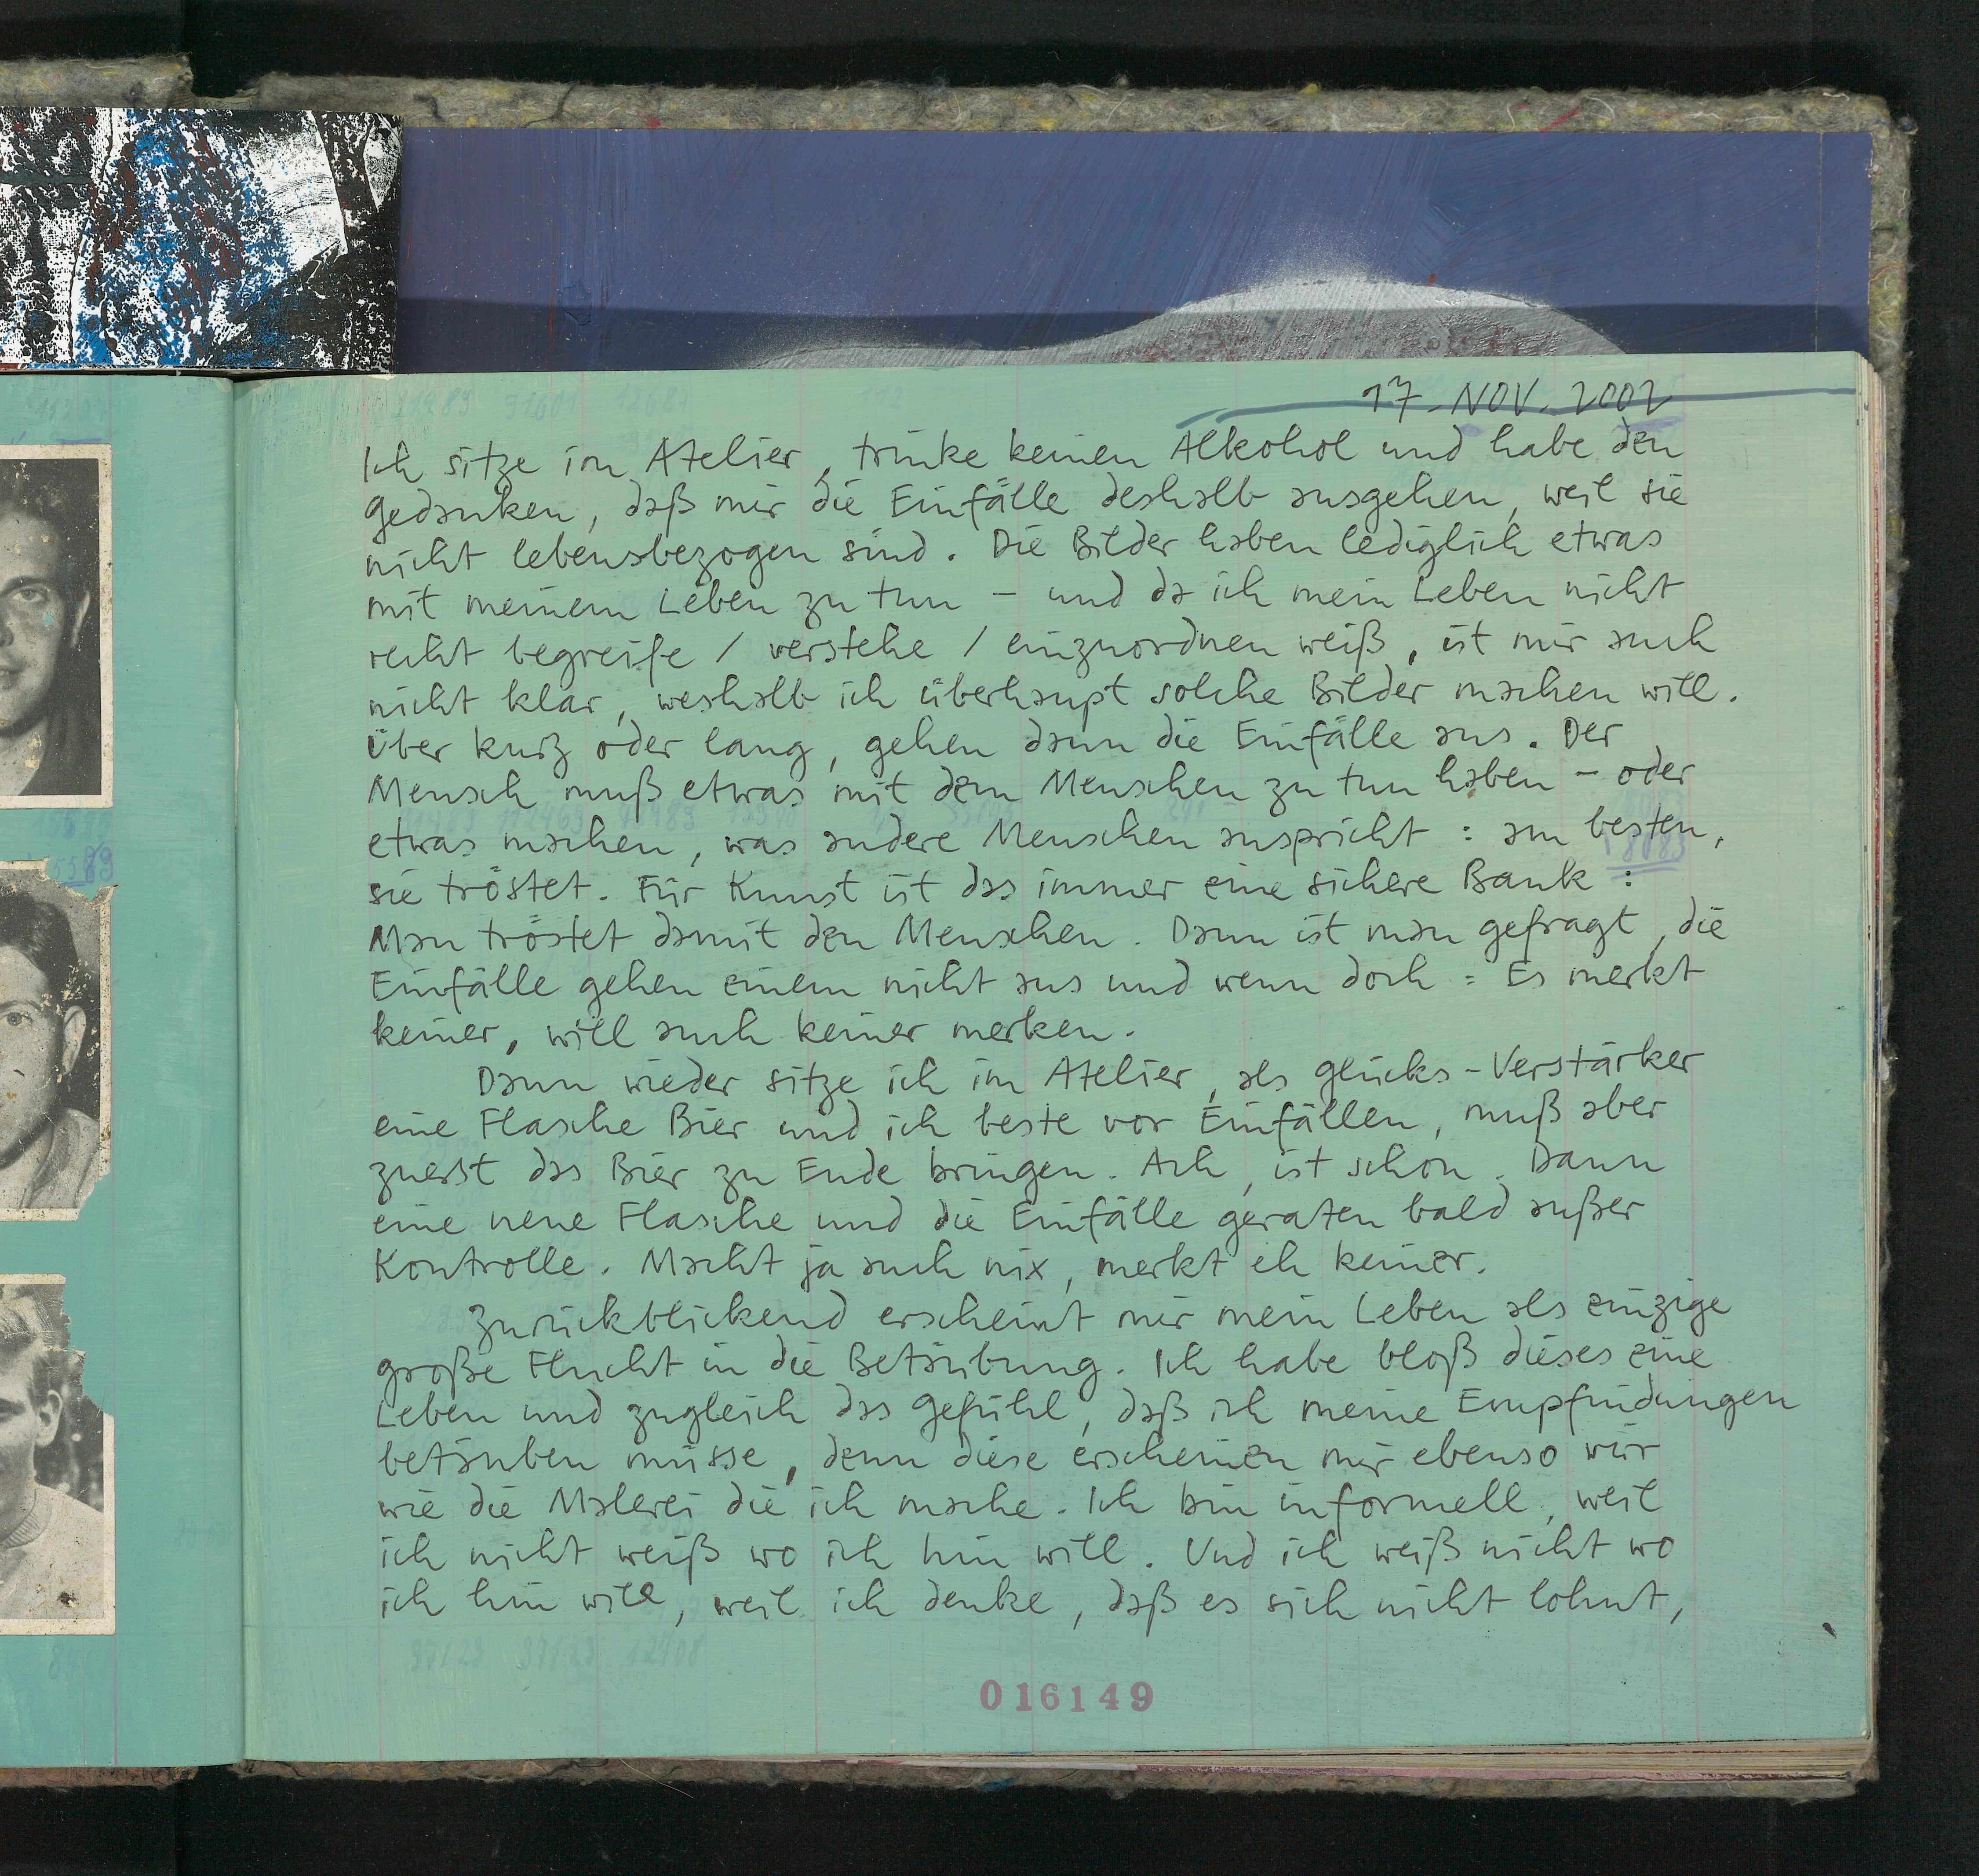 17. NOV. 2002
Ich sitze im Atelier, trinke keinen Alkohol und habe den
Gedanken, daß mir die Einfälle deshalb ausgehen, weil sie
nicht lebensbezogen sind. Die Bilder haben lediglich etwas
mit meinem Leben zu tun – und da ich mein Leben nicht
recht begreife / verstehe / einzuordnen weiß, ist mir auch
nicht klar, weshalb ich überhaupt solche Bilder machen will.
Über kurz oder lang, gehen dann die Einfälle aus. Der
Mensch muß etwas mit dem Menschen zu tun haben – oder
etwas machen, was andere Menschen anspricht: am besten,
sie tröstet. Für Kunst ist das immer eine sichere Bank:
Man tröstet damit den Menschen. Dann ist man gefragt, die
Einfälle gehen einem nicht aus und wenn doch: Es merkt
keiner, will auch keiner merken.
Dann wieder sitze ich im Atelier, als Glücks-Verstärker
eine Flasche Bier und ich berste vor Einfällen, muß aber
zuerst das Bier zu Ende bringen. Ach, ist schon. Dann
eine neue Flasche und die Einfälle geraten bald außer
Kontrolle. Macht ja auch nix, merkt eh keiner.
Zurückblickend erscheint mir mein Leben als einzige
große Flucht in die Betäubung. Ich habe bloß dieses eine
Leben und zugleich das Gefühl, daß ich meine Empfindungen
betäuben müsse, denn diese erscheinen mir ebenso wirr
wie die Malerei die ich mache. Ich bin informell, weil
ich nicht weiß wo ich hin will. Und ich weiß nicht wo
ich hin will, weil ich denke, daß es sich nicht lohnt,
016149